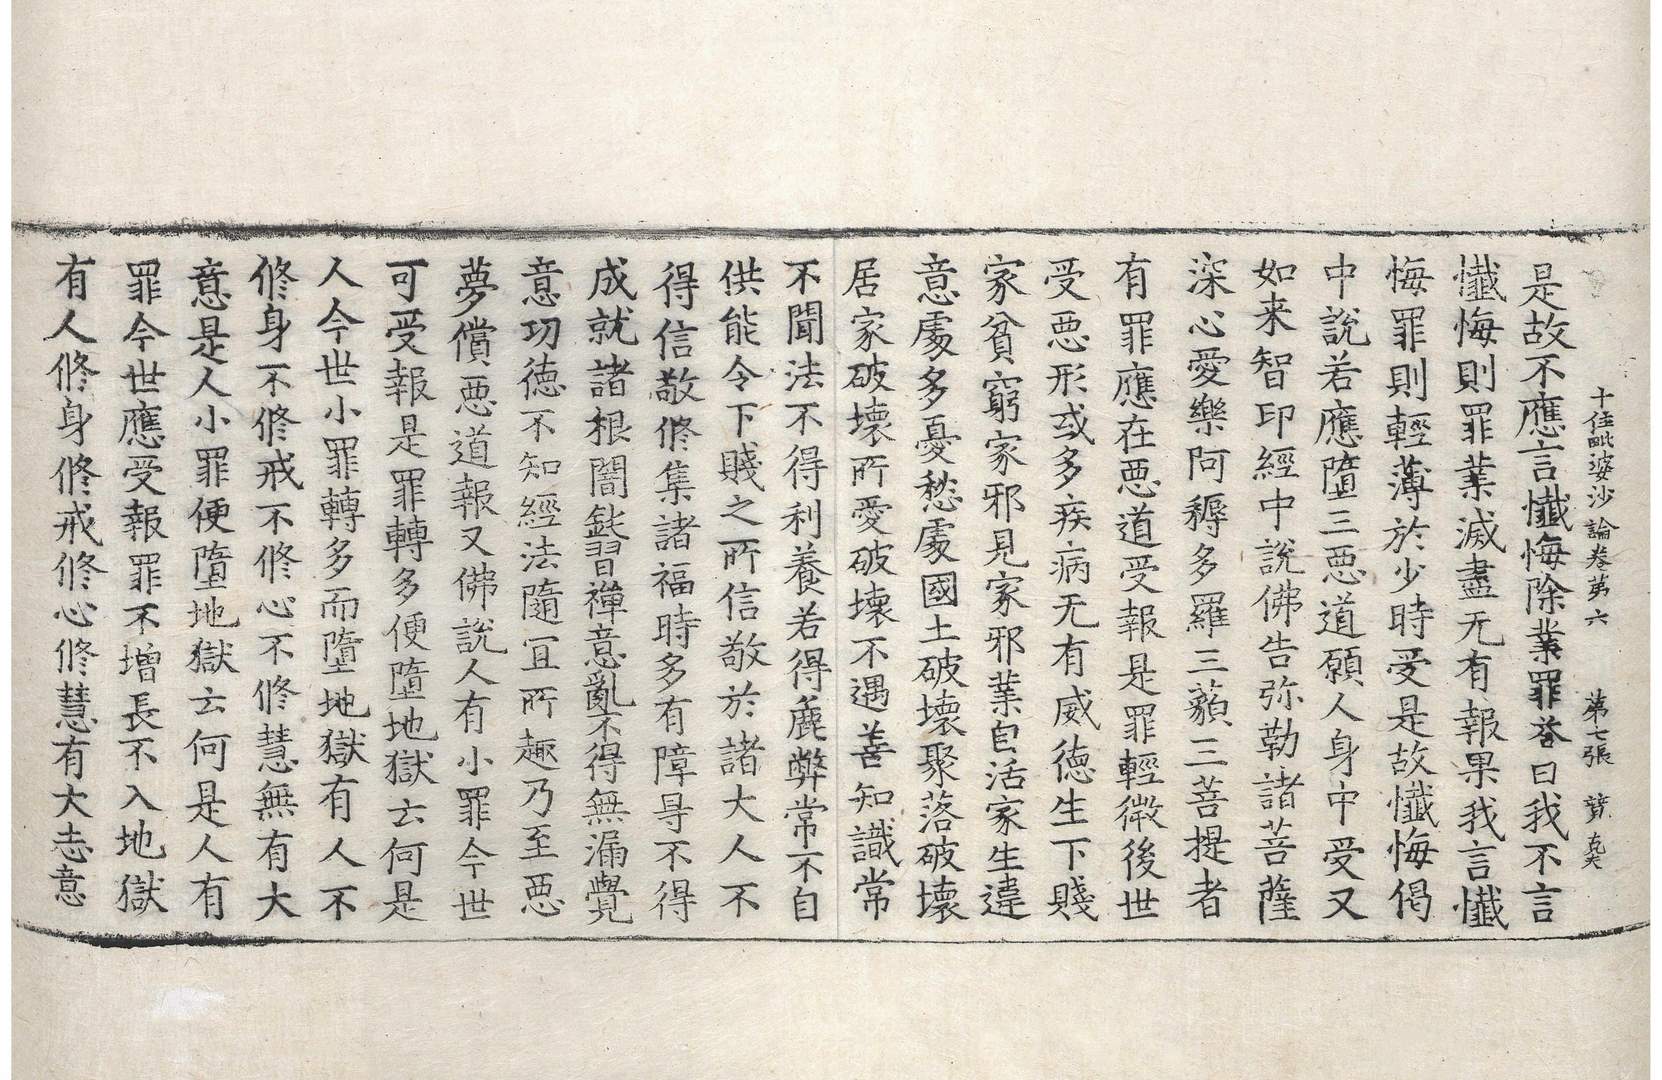 十住毗婆沙論卷苐六 苐七張 賛
是故不應言懺悔除業罪荅曰我不言
懺悔則罪業滅盡无有報果我言懺
悔罪則輕薄於少時受是故懺悔偈
中說若應墮三惡道願人身中受又
如来智印經中說佛告弥勒諸菩薩
深心愛樂阿耨多羅三藐三菩提者
有罪應在惡道受報是罪輕微後世
受惡形或多疾病无有威德生下賤
家貧窮家邪見家邪業自活家生違
意處多憂愁處國土破壞聚落破壞
居家破壞所愛破壞不遇善知識常
不聞法不得利養若得麁弊常不自
供能令下賤之所信敬於諸大人不
得信敬修集諸福時多有障㝵不得
成就諸根闇鈍習禪意亂不得無漏覺
意功德不知經法隨宜所趣乃至惡
夢償惡道報又佛說人有小罪今世
可受報是罪轉多便墮地獄云何是
人今世小罪轉多而墮地獄有人不
修身不修戒不修心不修慧無有大
意是人小罪便墮地獄云何是人有
罪今世應受報罪不增長不入地獄
有人修身修戒修心修慧有大志意